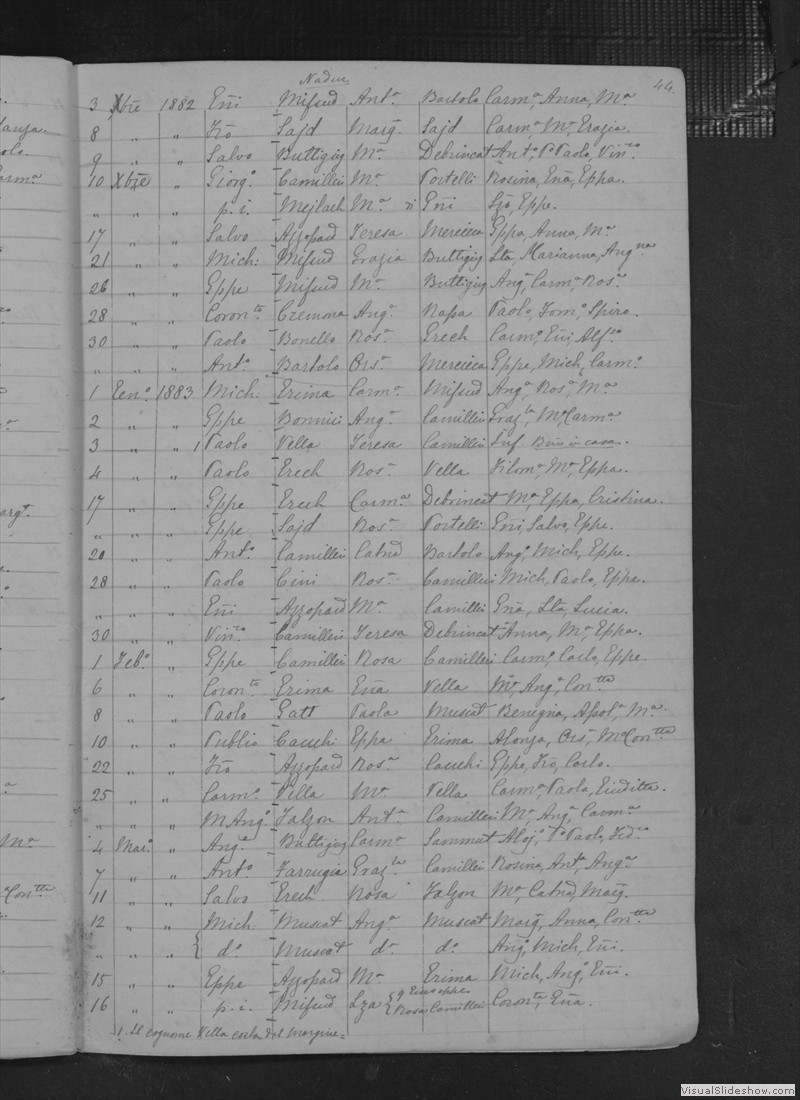 Nadur
44.
3 Xbre 1882 Eñi Mifsud Antª Bartolo Carmª Anna, Mª
8 " " Fco Sajd Marg̃. Sajd Carmª Mª Grazia.
9 " " Salvo Buttigieg Mª Debrincat Antº Pº Paolo, Vinzo
10 Xbre " Giorgº Camilleri Mª Portelli Rosina, Eña, Eppa.
" " " p. i. Mejlach Mª di Eñi Eppe.
17 " " Salvo Azzopard Teresa Mercieca Eppa, Anna, Mª
21 " " Mich: Mifsud Grazia Buttigieg Marianna, Angna
26 " " Eppe Mifsud Mª Buttigieg Angª Carmª Rosª
28 " " Coronto Cremona Angª Rapa Paolo, Spiro.
30 " " Paolo Bonello Rosª Grech Carmº Eñi
" " " Antº Bartolo Orsª Mercieca Eppe, Mich, Carmº
1 Genº 1883 Mich. Grima Carmª Mifsud Angª Rosª Mª
2 " " Eppe Bonnici Angª Camilleri Grazla Mª Carmª
3 " " 1 Paolo Vella Teresa Camilleri in casa.
4 " " Paolo Grech Rosª Vella Filomª Mª Eppa.
17 " " Eppe Grech Carmª Debrincat Mª Eppa, Cristina.
" " " Eppe Sajd Rosª Portelli Eñi Salvo, Eppe.
20 " " Antº Camilleri Catña Bartolo Angº Mich, Eppe.
28 " " Paolo Cini Rosª Camilleri Mich, Paolo, Eppe.
" " " Eñi Azzopard Mª Camilleri Eña, Lucia.
30 " " Vinzo Camilleri Teresa Debrincat Anna, Mª Eppa.
1 Febº " Eppe Camilleri Rosa Camilleri Carmº Carlo, Eppe.
6 " " Coronto Grima Eña Vella Mª Angª Contta
8 " " Paolo Gatt Paola Muscat Benigna, Mª
10 " " Publio Cauchi Eppa Grima Orsª Mª Contta
22 " " Fco Azzopard Rosª Cauchi Eppe, Fco, Carlo.
25 " " Carmº Vella Mª Vella Carmª Paola, Giuditta.
" " " M Angº Falzon Antª Camilleri Mª Angª Carmª
4 Marº " Angº Buttigieg Carmª Sammut Alojº Pº Paolo
7 " " Antº Farrugia Grazla Camilleri Rosina, Antª Angª
11 " " Salvo Grech Rosa Falzon Mª Catña, Marg̃.
12 " " Mich. Muscat Angª Muscat Marg̃, Anna, Contta
" " " { dº Muscat dª dº Angº Mich, Eñi.
15 " " Eppe Azzopard Mª Grima Mich, Angº Eñi.
16 " " p. i. Mifsud Lza { q Giuseppe
{ Rosa Camilleri Coronta, Eña.
1. Il cognome Vella costa dal margine=
VisualSlideshow.com